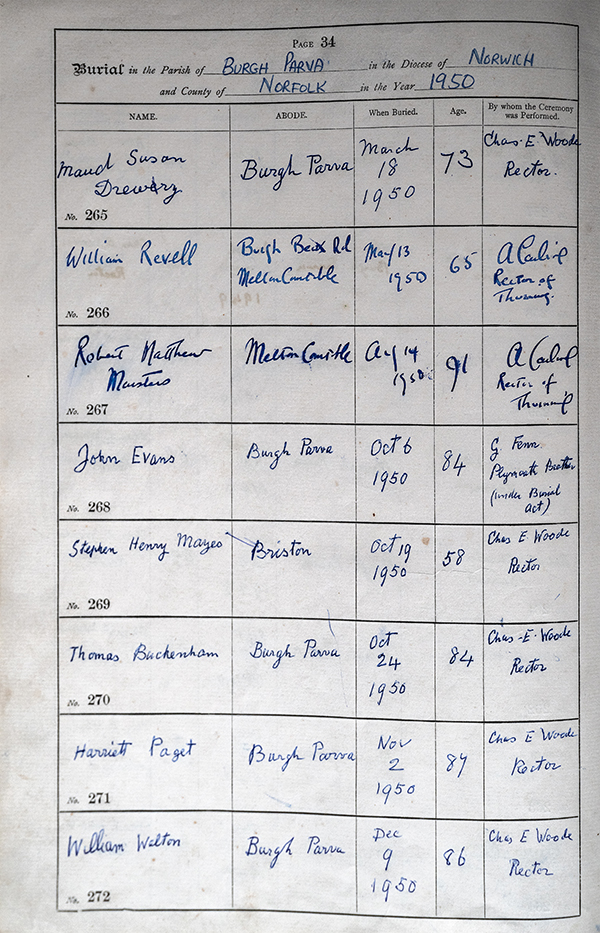 PAGE 34
Burial in the Parish of BURGH PARVA in the Diocese of NORWICH
and County of NORFOLK in the Year 1950
NAME.
ABODE.
When Buried.
Age.
By whom the Ceremony
was Performed.
Maud Susan
Drewery
No. 265
Burgh Parva
March
18
1950
73
Chas. E Woode
Rector.
William Revell
No. 266
Burgh Rd
Melton Constable
May 13
1950
65
A
Rector of
Robert Matthew
Masters
No. 267
Melton Constable
Aug 14
1950
91
A
Rector of
John Evans
No. 268
Burgh Parva
Oct 6
1950
84
G. Fenn
Plymouth Brother
(under Burial
act)
Stephen Henry Mayes
No. 269
Briston
Oct 19
1950
58
Chas E Woode
Rector
Thomas Buckenham
No. 270
Burgh Parva
Oct
24
1950
84
Chas-E-Woode
Rector
Harriett Paget
No. 271
Burgh Parva
Nov
2
1950
87
Chas E Woode
Rector
William Walton
No. 272
Burgh Parva
Dec
9
1950
86
Chas E Woode
Rector